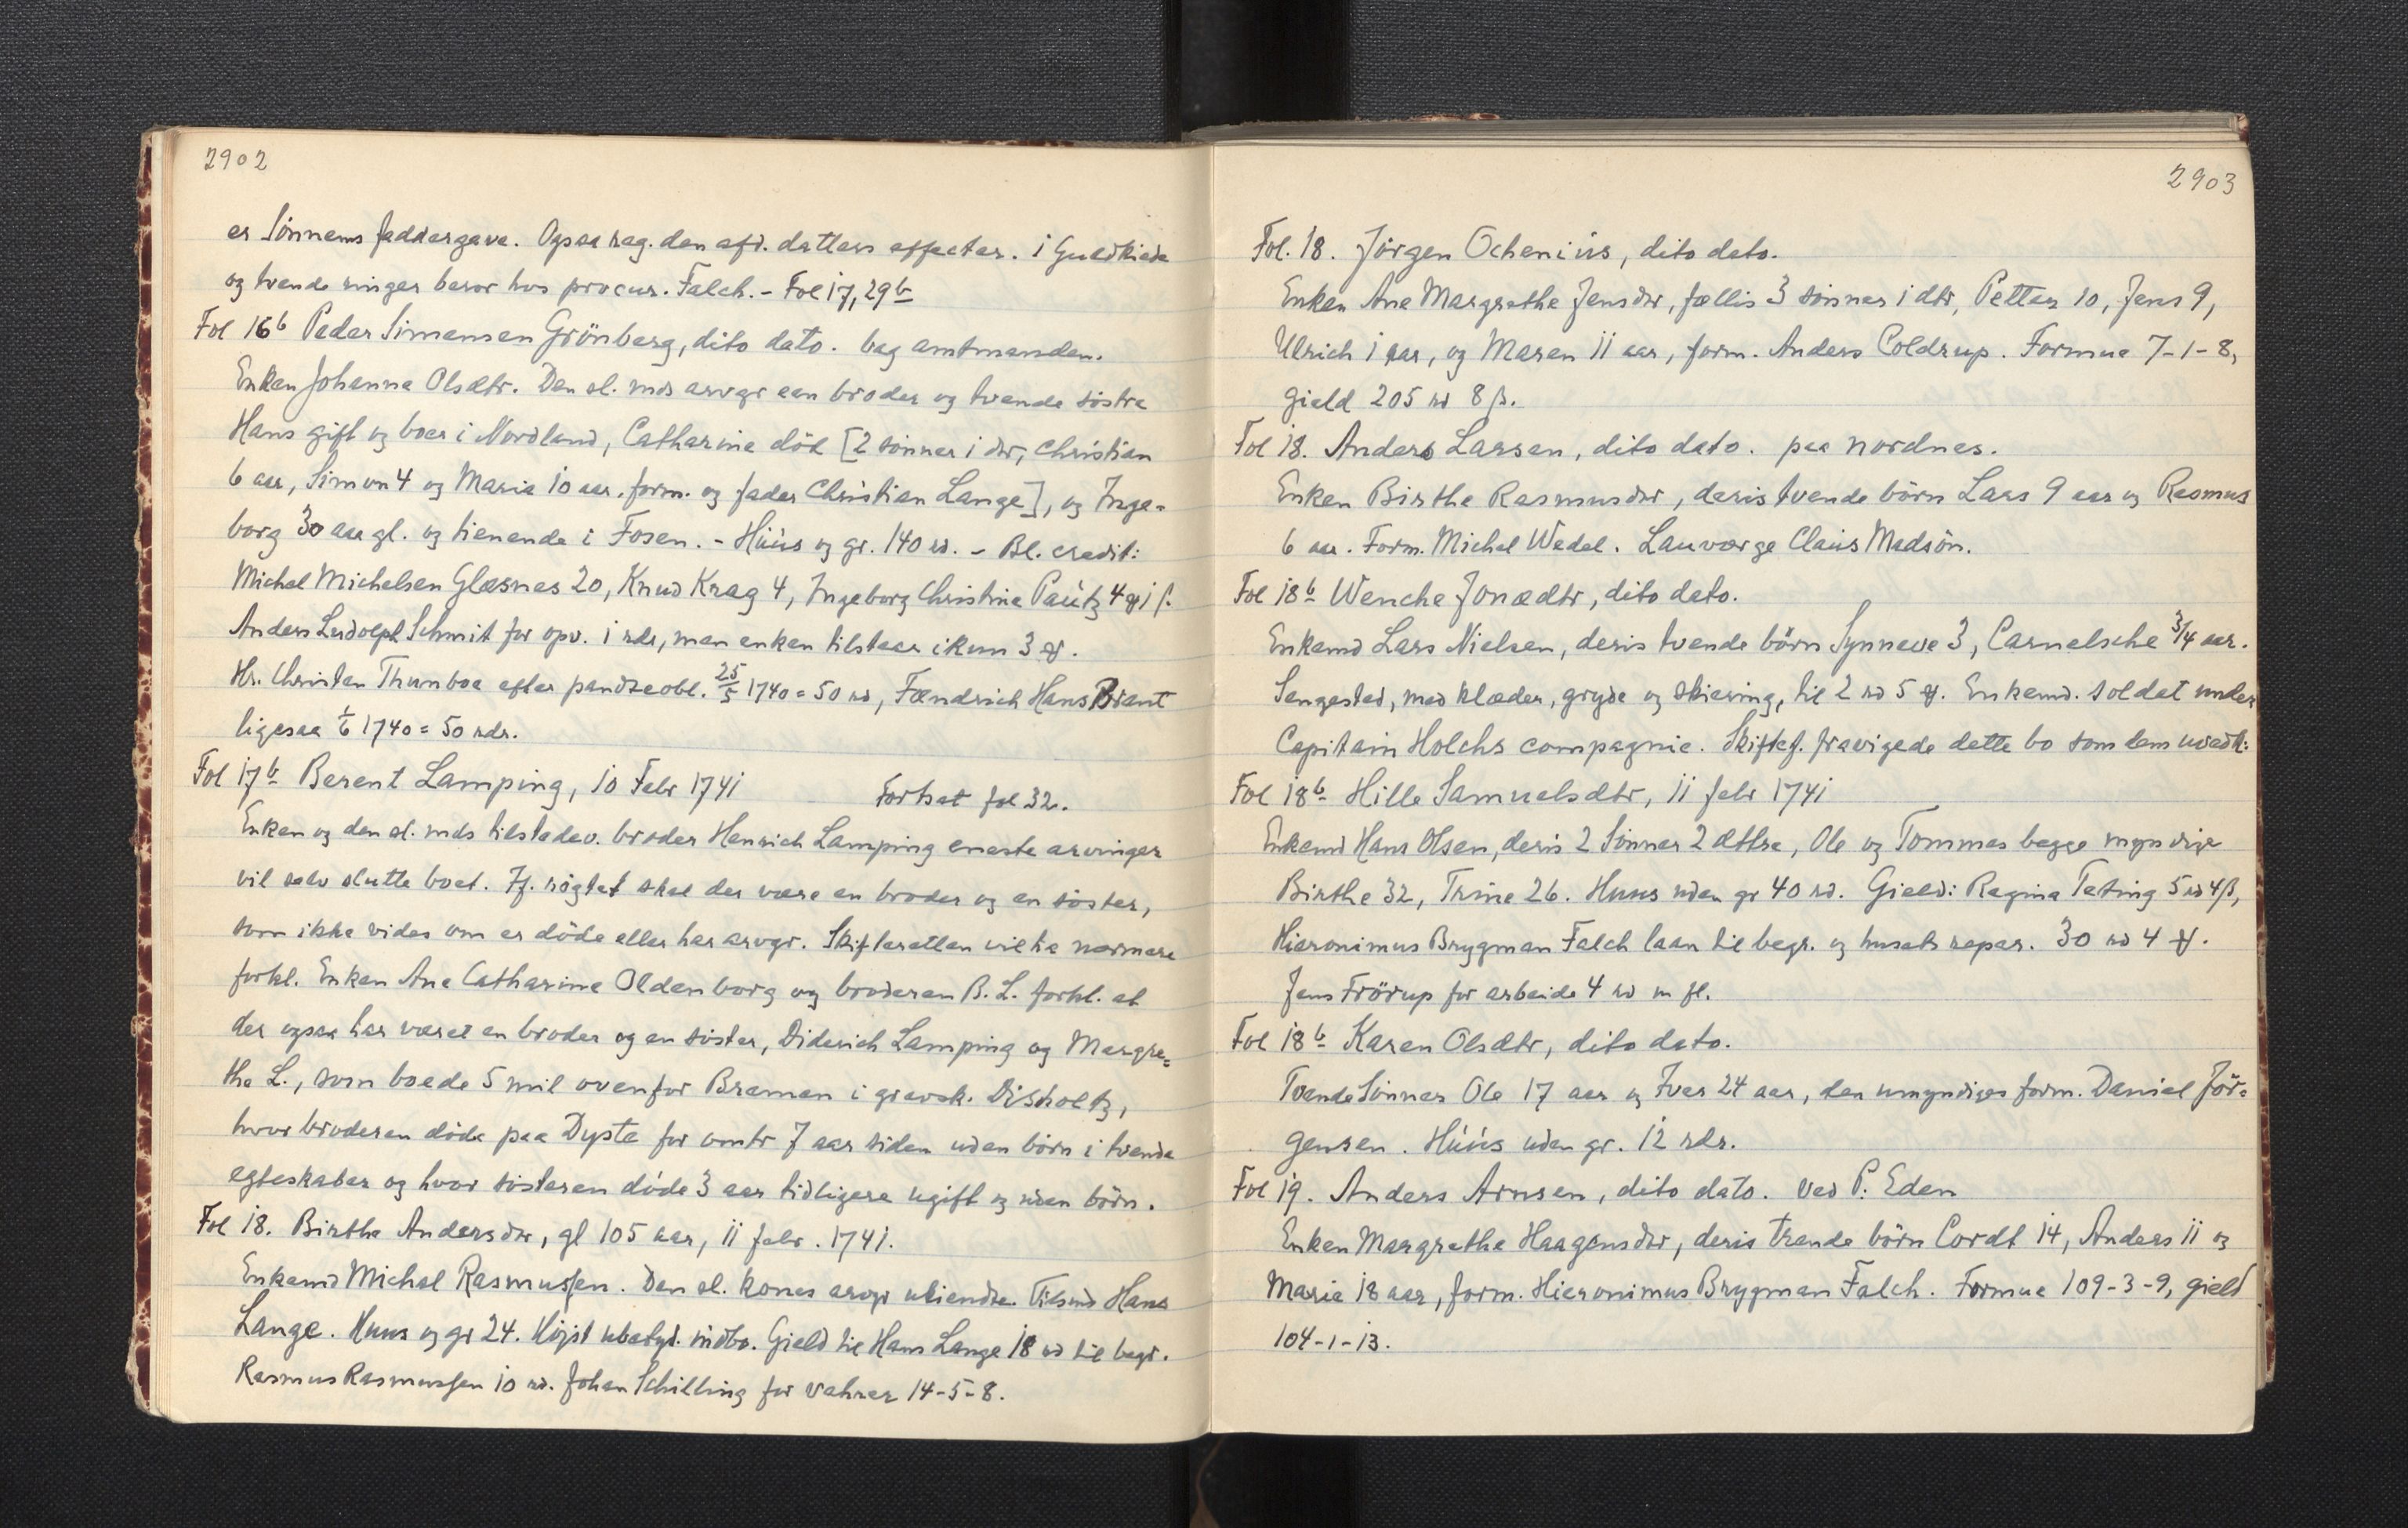 2902
er Sönnens faddergave. Ogsaa reg. den afd. datters effecter. 1 Guldkiede
og tvende ringer beror hos procur. Falch. - Fol 17, 29b
Fol 16b Peder Simensen Grönberg, dito dato. bag amtmanden.
Enken Johanna Olsdtr. Den sl. mds arvgr een broder og tvende söstre
Hans gift og boer i Nordland, Catharine död [2 sönner 1 dtr, Christian
6 aar, Simon 4 og Maria 10 aar. form. og fader Christian Lange], og Inge-
borg 30 aar gl. og tienende i Fosen. - Húus og gr. 140 rd. - Bl. credit:
Michel Michelsen Glæsnes 20, Knud Krag 4, Ingeborg Christina Paútz 4 ℳ 1 ß.
Anders Ludolph Schmit for opv. 1 rdr, men enken tilstaar ikun 3 ℳ.
Hr. Christen Thunboe efter pandteobl. 25/5 1740 = 50 rd, Fændrich Hans Brant
ligesaa 1/6 1740 = 50 rdr.
Fol 17b Berent Lamping, 10 Febr 1741 Fortsat fol 32.
Enken og den sl. mds tilstedev. broder Henrich Lamping eneste arvinger
vil selv slutte boet. Ff. rögtet skal der være en broder og en söster,
som ikke vides om er döde eller har arvgr. Skifteretten vil ha nærmere
forkl. Enken Ane Catharine Oldenborg og broderen B. L. forkl. at
der ogsaa har været en broder og en söster, Diderich Lamping og Margre=
the L., som boede 5 mil ovenfor Bremen i grevsk. Disholtz,
hvor broderen döde paa Dyste for omtr 7 aar siden uden börn i tvende
egteskaber og hvor sösteren döde 3 aar tidligere ugift og uden börn.
Fol 18. Birthe Andersdtr, gl 105 aar, 11 febr. 1741.
Enkemd Michel Rasmussen. Den sl. kones arvgr ukiendte. Tilsmd Hans
Lange. Huus og gr 24. Höjst ubetyd. indbo. Gield til Hans Lange 18 rd til begr.
Rasmus Rasmussen 10 rd. Johan Schilling for vahrer 14-5-8.
2903
Fol. 18. Jörgen Ochenius, dito dato.
Enken Ane Margrethe Jensdtr, fællis 3 sönner 1 dtr, Petter 10, Jens 9,
Ulrich 1 aar, og Maren 11 aar, form. Anders Coldrup. Formue 7-1-8,
gield 205 rd 8 ß.
Fol 18. Anders Larsen, dito dato. paa nordnes.
Enken Birthe Rasmusdtr, deris tvende börn Lars 9 aar og Rasmus
6 aar. Form. Michel Wedel. Lauværge Claus Madsön.
Fol 18b Wenche Jonædtr, dito dato.
Enkemd Lars Nielsen, deris tvende börn Synneve 3, Carnelsche 3/4 aar.
Sengested, med klæder, gryde og skiering, til 2 rd 5 ℳ. Enkemd. soldat under
Capitain Holchs compagnie. Skiftef. fravigede dette bo som dem uvedk:
Fol 18b Hille Samuelsdtr, 11 febr 1741
Enkemd Hans Olsen, deris 2 Sönner 2 dttre, Ole og Tommes begge myndige
Birthe 32, Trine 26. Huus uden gr 40 rd. Gield: Regina Teting 5 rd 4 ß,
Hieronimus Brygman Falch laan til begr. og husets repar. 30 rd 4 ℳ.
Jens Frörup for arbeide 4 rd m fl.
Fol 18b Karen Olsdtr, dito dato.
Tvende Sönner Ole 17 aar og Iver 24 aar, den umyndiges form. Daniel Jör=
gensen. Húus uden gr. 12 rdr.
Fol 19. Anders Arnsen, dito dato. Ved P: Eden
Enken Margrethe Haagensdtr, deris trende börn Cordt 14, Anders 11 og
Maria 18 aar, form. Hieronimus Brygman Falch. Formue 109-3-9, gield
104-1-13.